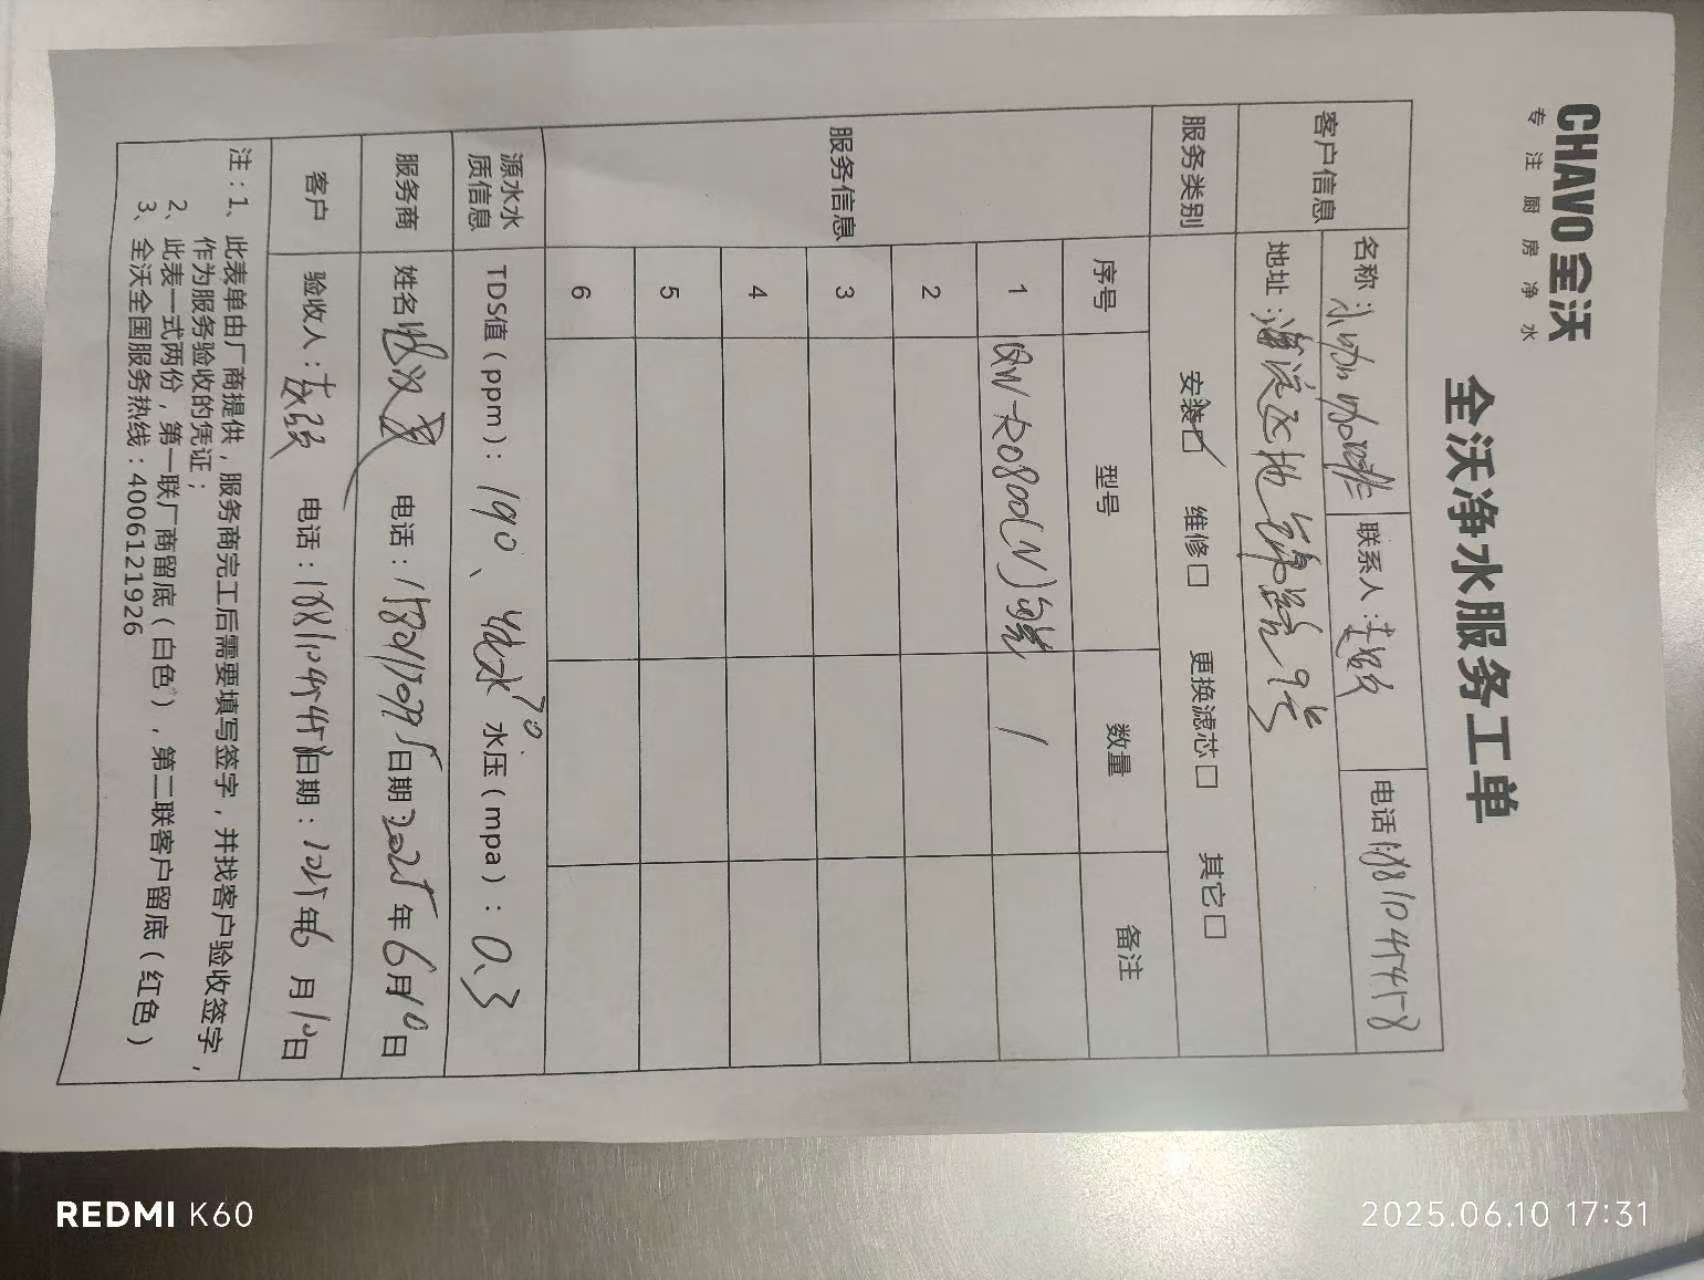 CHAVO 全沃
专注厨房净水
全沃净水服务工单
客户信息 名称: 联系人: 电话: 18810454158
地址: 海淀区地锦路9号
服务类别 安装☑ 维修□ 更换滤芯□ 其它□
服务信息 序号 型号 数量 备注
1 QW-RO800(N) 1
2
3
4
5
6
源水水质信息 TDS值(ppm): 190、纯水 70 水压(mpa): 0.3
服务商 姓名 电话: 日期: 2025年6月10日
客户 验收人: 电话: 18810454158 日期: 2025年6月10日
注:1、此表单由厂商提供,服务商完工后需要填写签字,并找客户验收签字,
作为服务验收的凭证;
2、此表一式两份,第一联厂商留底(白色),第二联客户留底(红色)
3、全沃全国服务热线:4006121926
REDMI K60
2025.06.10 17:31